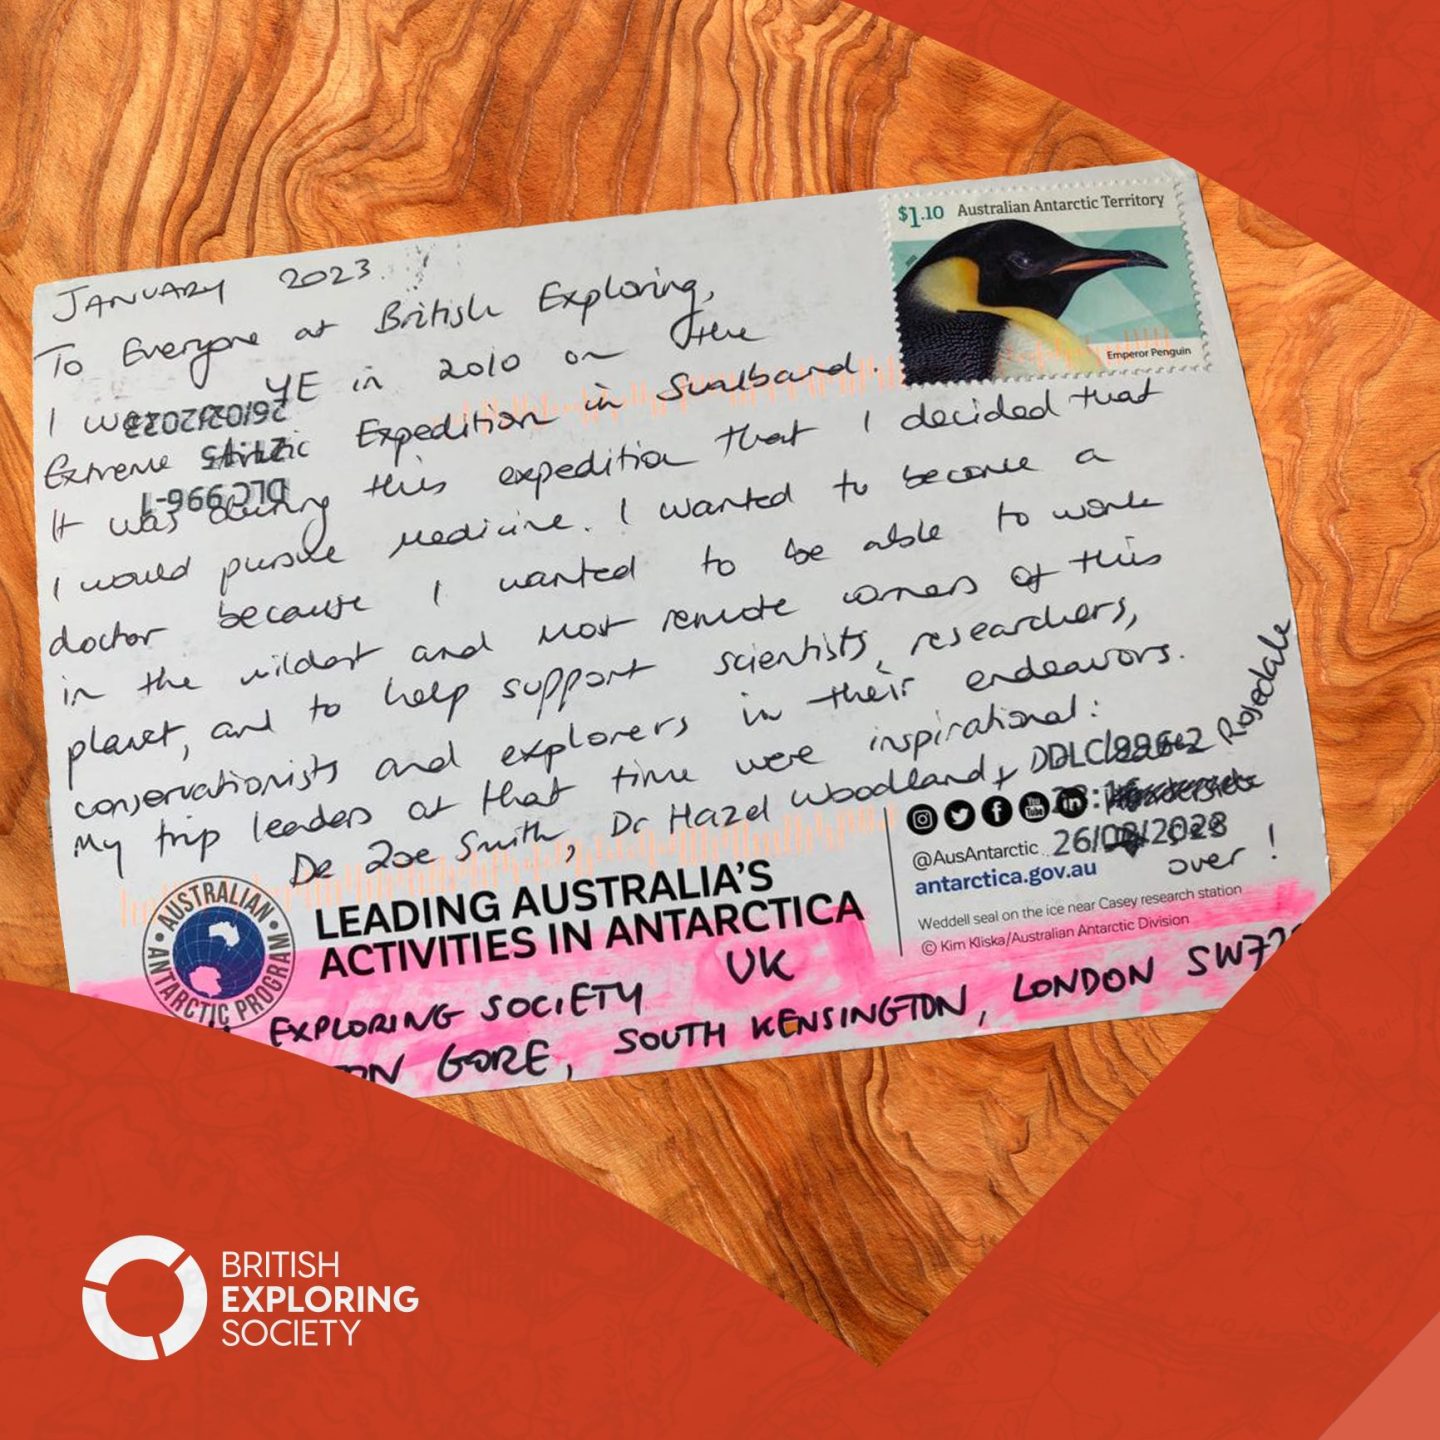 $1.10 Australian Antarctic Territory
Emperor Penguin
JANUARY 2023.
To Everyone at British Exploring,
I was YE in 2010 on the
Extreme Arctic Expedition in Svalbard.
It was during this expedition that I decided that
I would pursue medicine. I wanted to become a
doctor because I wanted to be able to work
in the wildest and most remote corners of this
planet, and to help support scientists, researchers,
conservationists and explorers in their endeavors.
My trip leaders at that time were inspirational:
Dr Zoe Smith, Dr Hazel Woodland, + Dr Rosedale
over!
26/02/2023
DLC 996-1
DLC 996-2
26/02/2023
AUSTRALIAN ANTARCTIC PROGRAM
LEADING AUSTRALIA'S
ACTIVITIES IN ANTARCTICA
@AusAntarctic
antarctica.gov.au
Weddell seal on the ice near Casey research station
© Kim Kliska/Australian Antarctic Division
EXPLORING SOCIETY UK
GORE, SOUTH KENSINGTON, LONDON SW7
BRITISH
EXPLORING
SOCIETY